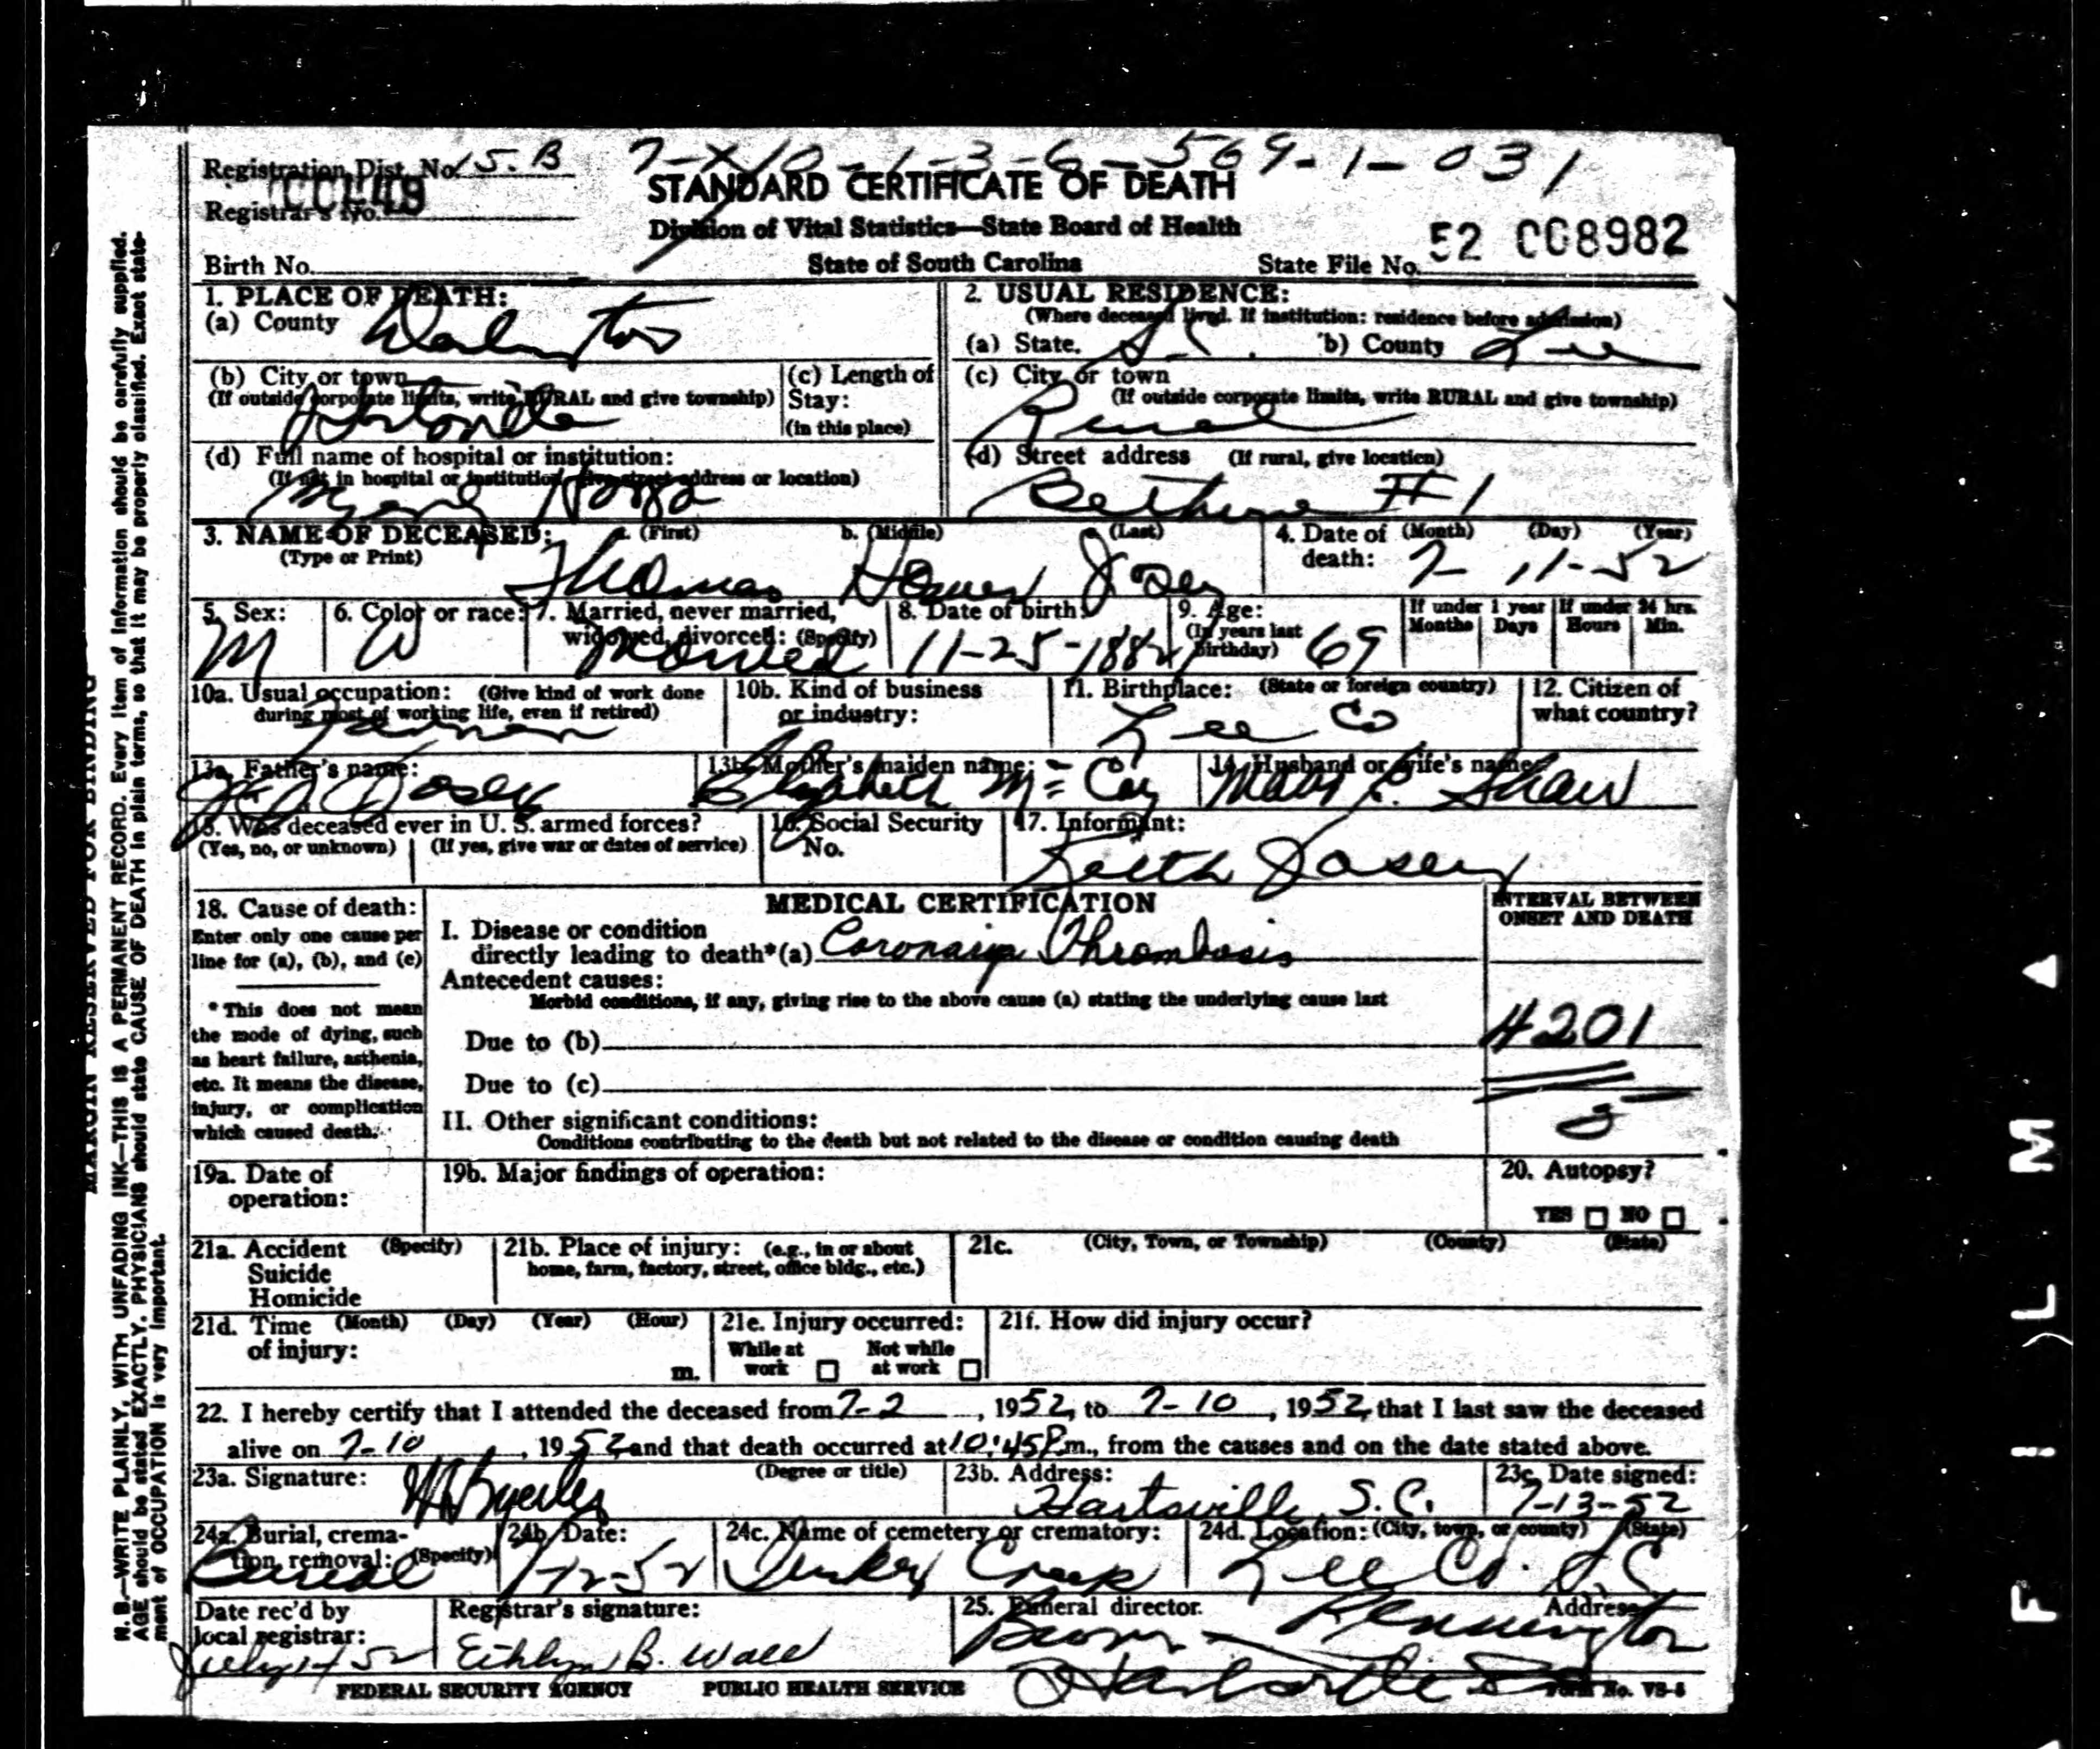 Registration Dist. No. 15.B 7-X10-1-3-6-569-1-031
STANDARD CERTIFICATE OF DEATH
Registrar's No.
Division of Vital Statistics—State Board of Health
52 008982
Birth No. State of South Carolina State File No.
1. PLACE OF DEATH: 2. USUAL RESIDENCE:
(Where deceased lived. If institution: residence before admission)
(a) County Darlington (a) State. S.C. (b) County Lee
(b) City or town (c) Length of (c) City or town
(If outside corporate limits, write RURAL and give township) Stay: (If outside corporate limits, write RURAL and give township)
Hartsville (in this place) Rural
(d) Full name of hospital or institution: (d) Street address (If rural, give location)
(If not in hospital or institution, give street address or location)
Bethune #1
3. NAME OF DECEASED: a. (First) b. (Middle) c. (Last) 4. Date of (Month) (Day) (Year)
(Type or Print) Thomas Josey death: 7- 11-52
5. Sex: 6. Color or race: 7. Married, never married, 8. Date of birth: 9. Age: If under 1 year If under 24 hrs.
widowed, divorced: (Specify) (In years last Months Days Hours Min.
M W Married 11-25-1882 birthday) 69
10a. Usual occupation: (Give kind of work done 10b. Kind of business 11. Birthplace: (State or foreign country) 12. Citizen of
during most of working life, even if retired) or industry: what country?
Farmer Lee Co
13a. Father's name: 13b. Mother's maiden name: 14. Husband or wife's name:
Josey Elizabeth McCoy Mary E. Shaw
15. Was deceased ever in U. S. armed forces? 16. Social Security 17. Informant:
(Yes, no, or unknown) (If yes, give war or dates of service) No.
Keith Josey
18. Cause of death: MEDICAL CERTIFICATION INTERVAL BETWEEN
Enter only one cause per I. Disease or condition ONSET AND DEATH
line for (a), (b), and (c) directly leading to death*(a) Coronary Thrombosis
Antecedent causes:
* This does not mean Morbid conditions, if any, giving rise to the above cause (a) stating the underlying cause last
the mode of dying, such Due to (b) 4201
as heart failure, asthenia,
etc. It means the disease, Due to (c)
injury, or complication II. Other significant conditions:
which caused death. Conditions contributing to the death but not related to the disease or condition causing death
19a. Date of 19b. Major findings of operation: 20. Autopsy?
operation: YES NO
21a. Accident (Specify) 21b. Place of injury: (e.g., in or about 21c. (City, Town, or Township) (County) (State)
Suicide home, farm, factory, street, office bldg., etc.)
Homicide
21d. Time (Month) (Day) (Year) (Hour) 21e. Injury occurred: 21f. How did injury occur?
of injury: m. While at work Not while at work
22. I hereby certify that I attended the deceased from 7-2, 1952, to 7-10, 1952, that I last saw the deceased
alive on 7-10, 1952, and that death occurred at 10:45P.m., from the causes and on the date stated above.
23a. Signature: (Degree or title) 23b. Address: 23c. Date signed:
Byerley Hartsville, S.C. 7-13-52
24a. Burial, crema- 24b. Date: 24c. Name of cemetery or crematory: 24d. Location: (City, town, or county) (State)
tion, removal: (Specify)
Burial 7-12-52 Creek Lee Co. S.C.
Date rec'd by Registrar's signature: 25. Funeral director. Address
local registrar:
July 14 52 B. Wall Brown-Pennington
Hartsville
FEDERAL SECURITY AGENCY PUBLIC HEALTH SERVICE Form No. VS-5
MARGIN RESERVED FOR BINDING
N.B.—WRITE PLAINLY, WITH UNFADING INK—THIS IS A PERMANENT RECORD. Every item of information should be carefully supplied.
AGE should be stated EXACTLY. PHYSICIANS should state CAUSE OF DEATH in plain terms, so that it may be properly classified. Exact state-
ment of OCCUPATION is very important.
FILM